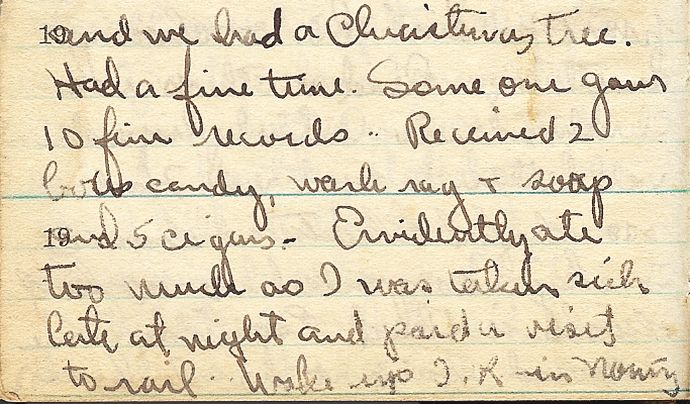 19 and we had a Christmas tree.
Had a fine time. Some one gave
10 fine records.. Received 2
boxes candy, wash rag + soap
19 and 5 cigars - Evidently ate
too much as I was taken sick
late at night and paid a visit
to rail.. Woke up O.K in